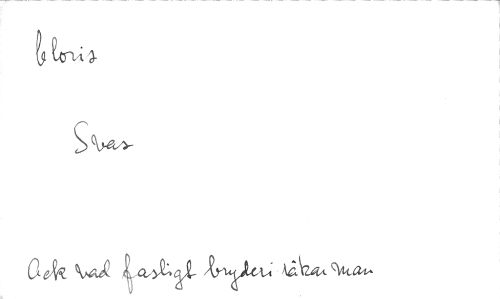 Cloris
Svas
Ack vad fasligt bryderi råkar man